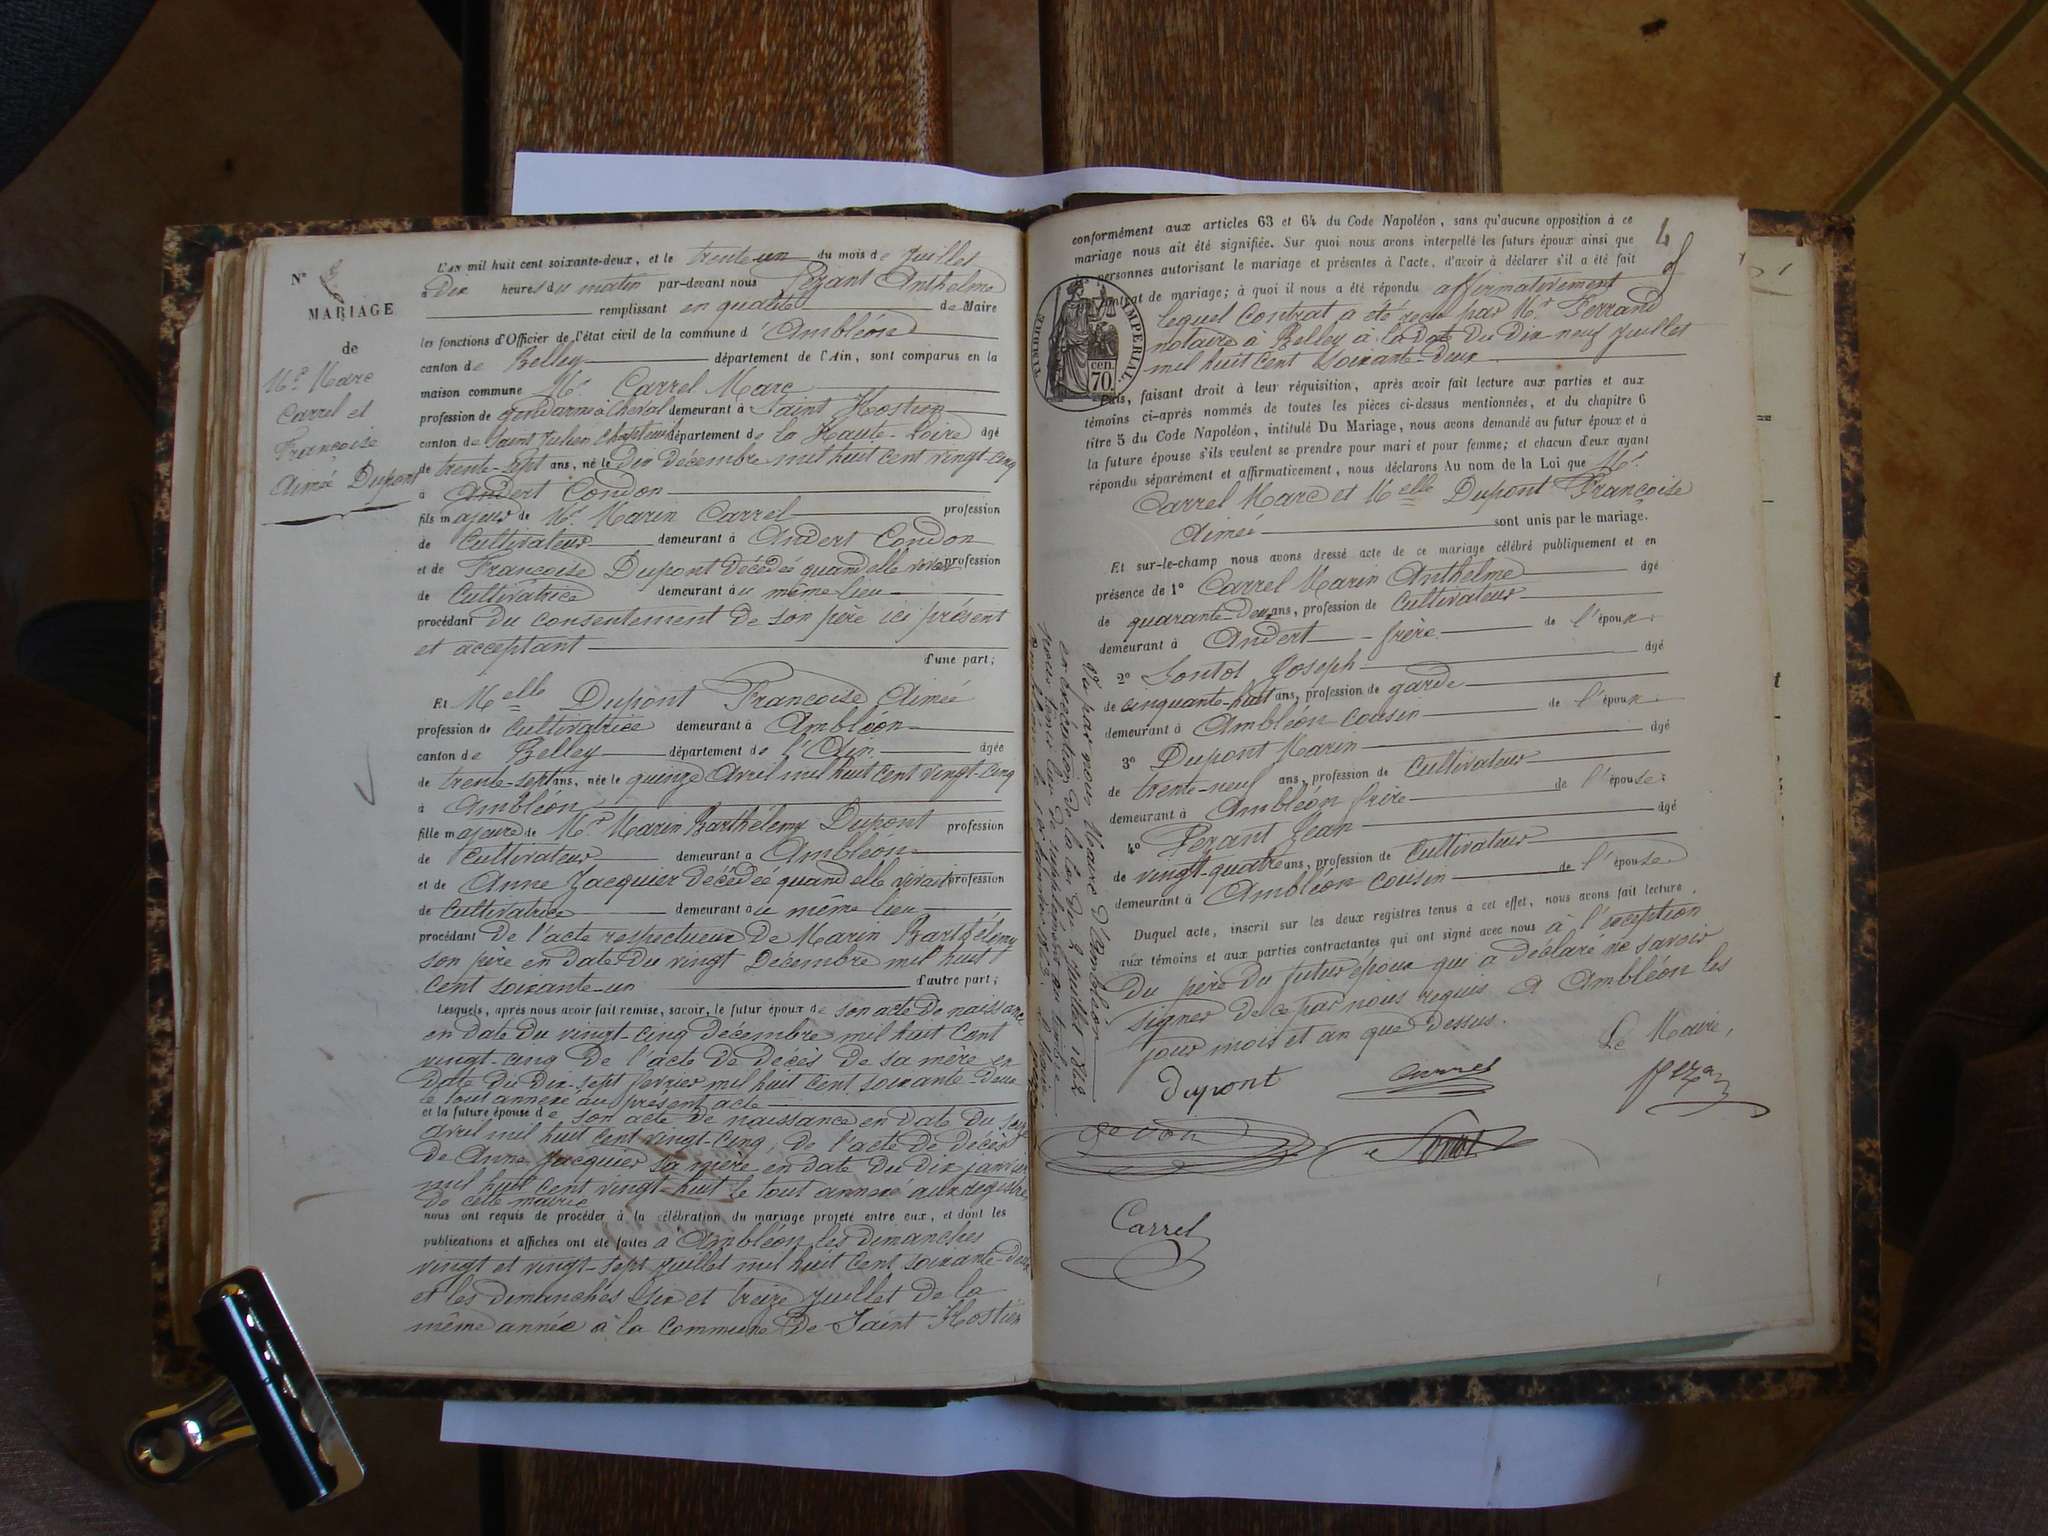 N°
MARIAGE
de
Mr Marc
Carrel et
Françoise
Aimée Dupont
L'AN mil huit cent soixante-deux, et le trente un du mois de Juillet
à Dix heures du matin par-devant nous Pezant Anthelme
remplissant en qualité de Maire
les fonctions d'Officier de l'état civil de la commune d'Ambléon
canton de Belley département de l'Ain, sont comparus en la
maison commune Mr Carrel Marc
profession de gendarme à Cheval demeurant à Saint Hostien
canton de Saint Julien Chapteuil département de la Haute-Loire âgé
de trente-sept ans, né le Dix Décembre mil huit cent vingt-cinq
à Andert Condon
fils majeur de Mr Marin Carrel profession
de Cultivateur demeurant à Andert Condon
et de Françoise Dupont Décédée quand elle vivait profession
de Cultivatrice demeurant au même lieu
procédant du consentement de son père ici présent
et acceptant
d'une part;
Et Melle Dupont Françoise Aimée
profession de Cultivatrice demeurant à Ambléon
canton de Belley département de l'Ain âgée
de trente-sept ans, née le quinze Avril mil huit cent vingt-cinq
à Ambléon
fille majeure de Mr Marin Barthélemy Dupont profession
de Cultivateur demeurant à Ambléon
et de Anne Jacquier Décédée quand elle vivait profession
de Cultivatrice demeurant au même lieu
procédant De l'acte respectueux de Marin Barthélemy
son père en date du vingt Décembre mil huit
Cent soixante-un d'autre part;
Lesquels, après nous avoir fait remise, savoir, le futur époux de son acte de naissance
en date du vingt-cinq Décembre mil huit cent
vingt-cinq De l'acte de Décès de sa mère en
date du dix-sept février mil huit cent soixante-deux
le tout annexé au présent acte
et la future épouse de son acte de naissance en date du seize
avril mil huit cent vingt-cinq, de l'acte de décès
de Anne Jacquier sa mère en date du dix janvier
mil huit cent vingt-huit le tout annexé aux registres
de cette mairie
nous ont requis de procéder à la célébration du mariage projeté entre eux, et dont les
publications et affiches ont été faites à Ambléon les dimanches
vingt et vingt-sept juillet mil huit cent soixante-deux
et les dimanches Six et treize juillet de la
même année à la Commune de Saint Hostien
4
conformément aux articles 63 et 64 du Code Napoléon, sans qu'aucune opposition à ce
mariage nous ait été signifiée. Sur quoi nous avons interpellé les futurs époux ainsi que
personnes autorisant le mariage et présentes à l'acte, d'avoir à déclarer s'il a été fait
contrat de mariage; à quoi il nous a été répondu affirmativement
lequel Contrat a été reçu par Mr Ferrand
notaire à Belley à la date du dix neuf juillet
mil huit cent soixante-deux
TIMBRE IMPERIAL
cen. 70
Puis, faisant droit à leur réquisition, après avoir fait lecture aux parties et aux
témoins ci-après nommés de toutes les pièces ci-dessus mentionnées, et du chapitre 6
titre 5 du Code Napoléon, intitulé Du Mariage, nous avons demandé au futur époux et à
la future épouse s'ils veulent se prendre pour mari et pour femme; et chacun d'eux ayant
répondu séparément et affirmativement, nous déclarons Au nom de la Loi que Mr
Carrel Marc et Melle Dupont Françoise
Aimée sont unis par le mariage.
Et sur-le-champ nous avons dressé acte de ce mariage célébré publiquement et en
présence de 1° Carrel Marin Anthelme âgé
de quarante-deux ans, profession de Cultivateur
demeurant à Andert frère de l'époux.
2° Sontot Joseph âgé
de cinquante-huit ans, profession de garde
demeurant à Ambléon cousin de l'époux.
3° Dupont Marin âgé
de trente-neuf ans, profession de Cultivateur
demeurant à Ambléon frère de l'épouse.
4° Pezant Jean âgé
de vingt-quatre ans, profession de Cultivateur
demeurant à Ambléon cousin de l'épouse.
Duquel acte, inscrit sur les deux registres tenus à cet effet, nous avons fait lecture
aux témoins et aux parties contractantes qui ont signé avec nous à l'exception
Du père du futur époux qui a déclaré ne savoir
signer de ce par nous requis. A Ambléon les
jour mois et an que Dessus.
Le Maire,
Dupont
Carrel
Vu par nous Maire d'Ambléon
en exécution de la loi du 2 juillet 1862